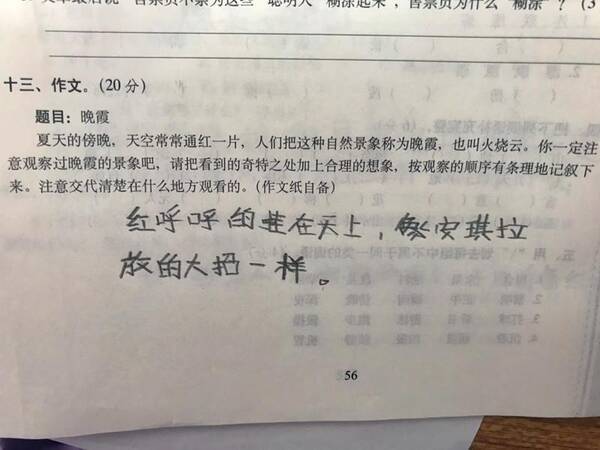 售票员不禁为这些“聪明人”糊涂起来,售票员为什么“糊涂”?(3
十三、作文。(20分)
题目:晚霞
夏天的傍晚,天空常常通红一片,人们把这种自然景象称为晚霞,也叫火烧云。你一定注
意观察过晚霞的景象吧,请把看到的奇特之处加上合理的想象,按观察的顺序有条理地记叙下
来。注意交代清楚在什么地方观看的。(作文纸自备)
红呼呼的挂在天上,像安琪拉
放的大招一样。
56